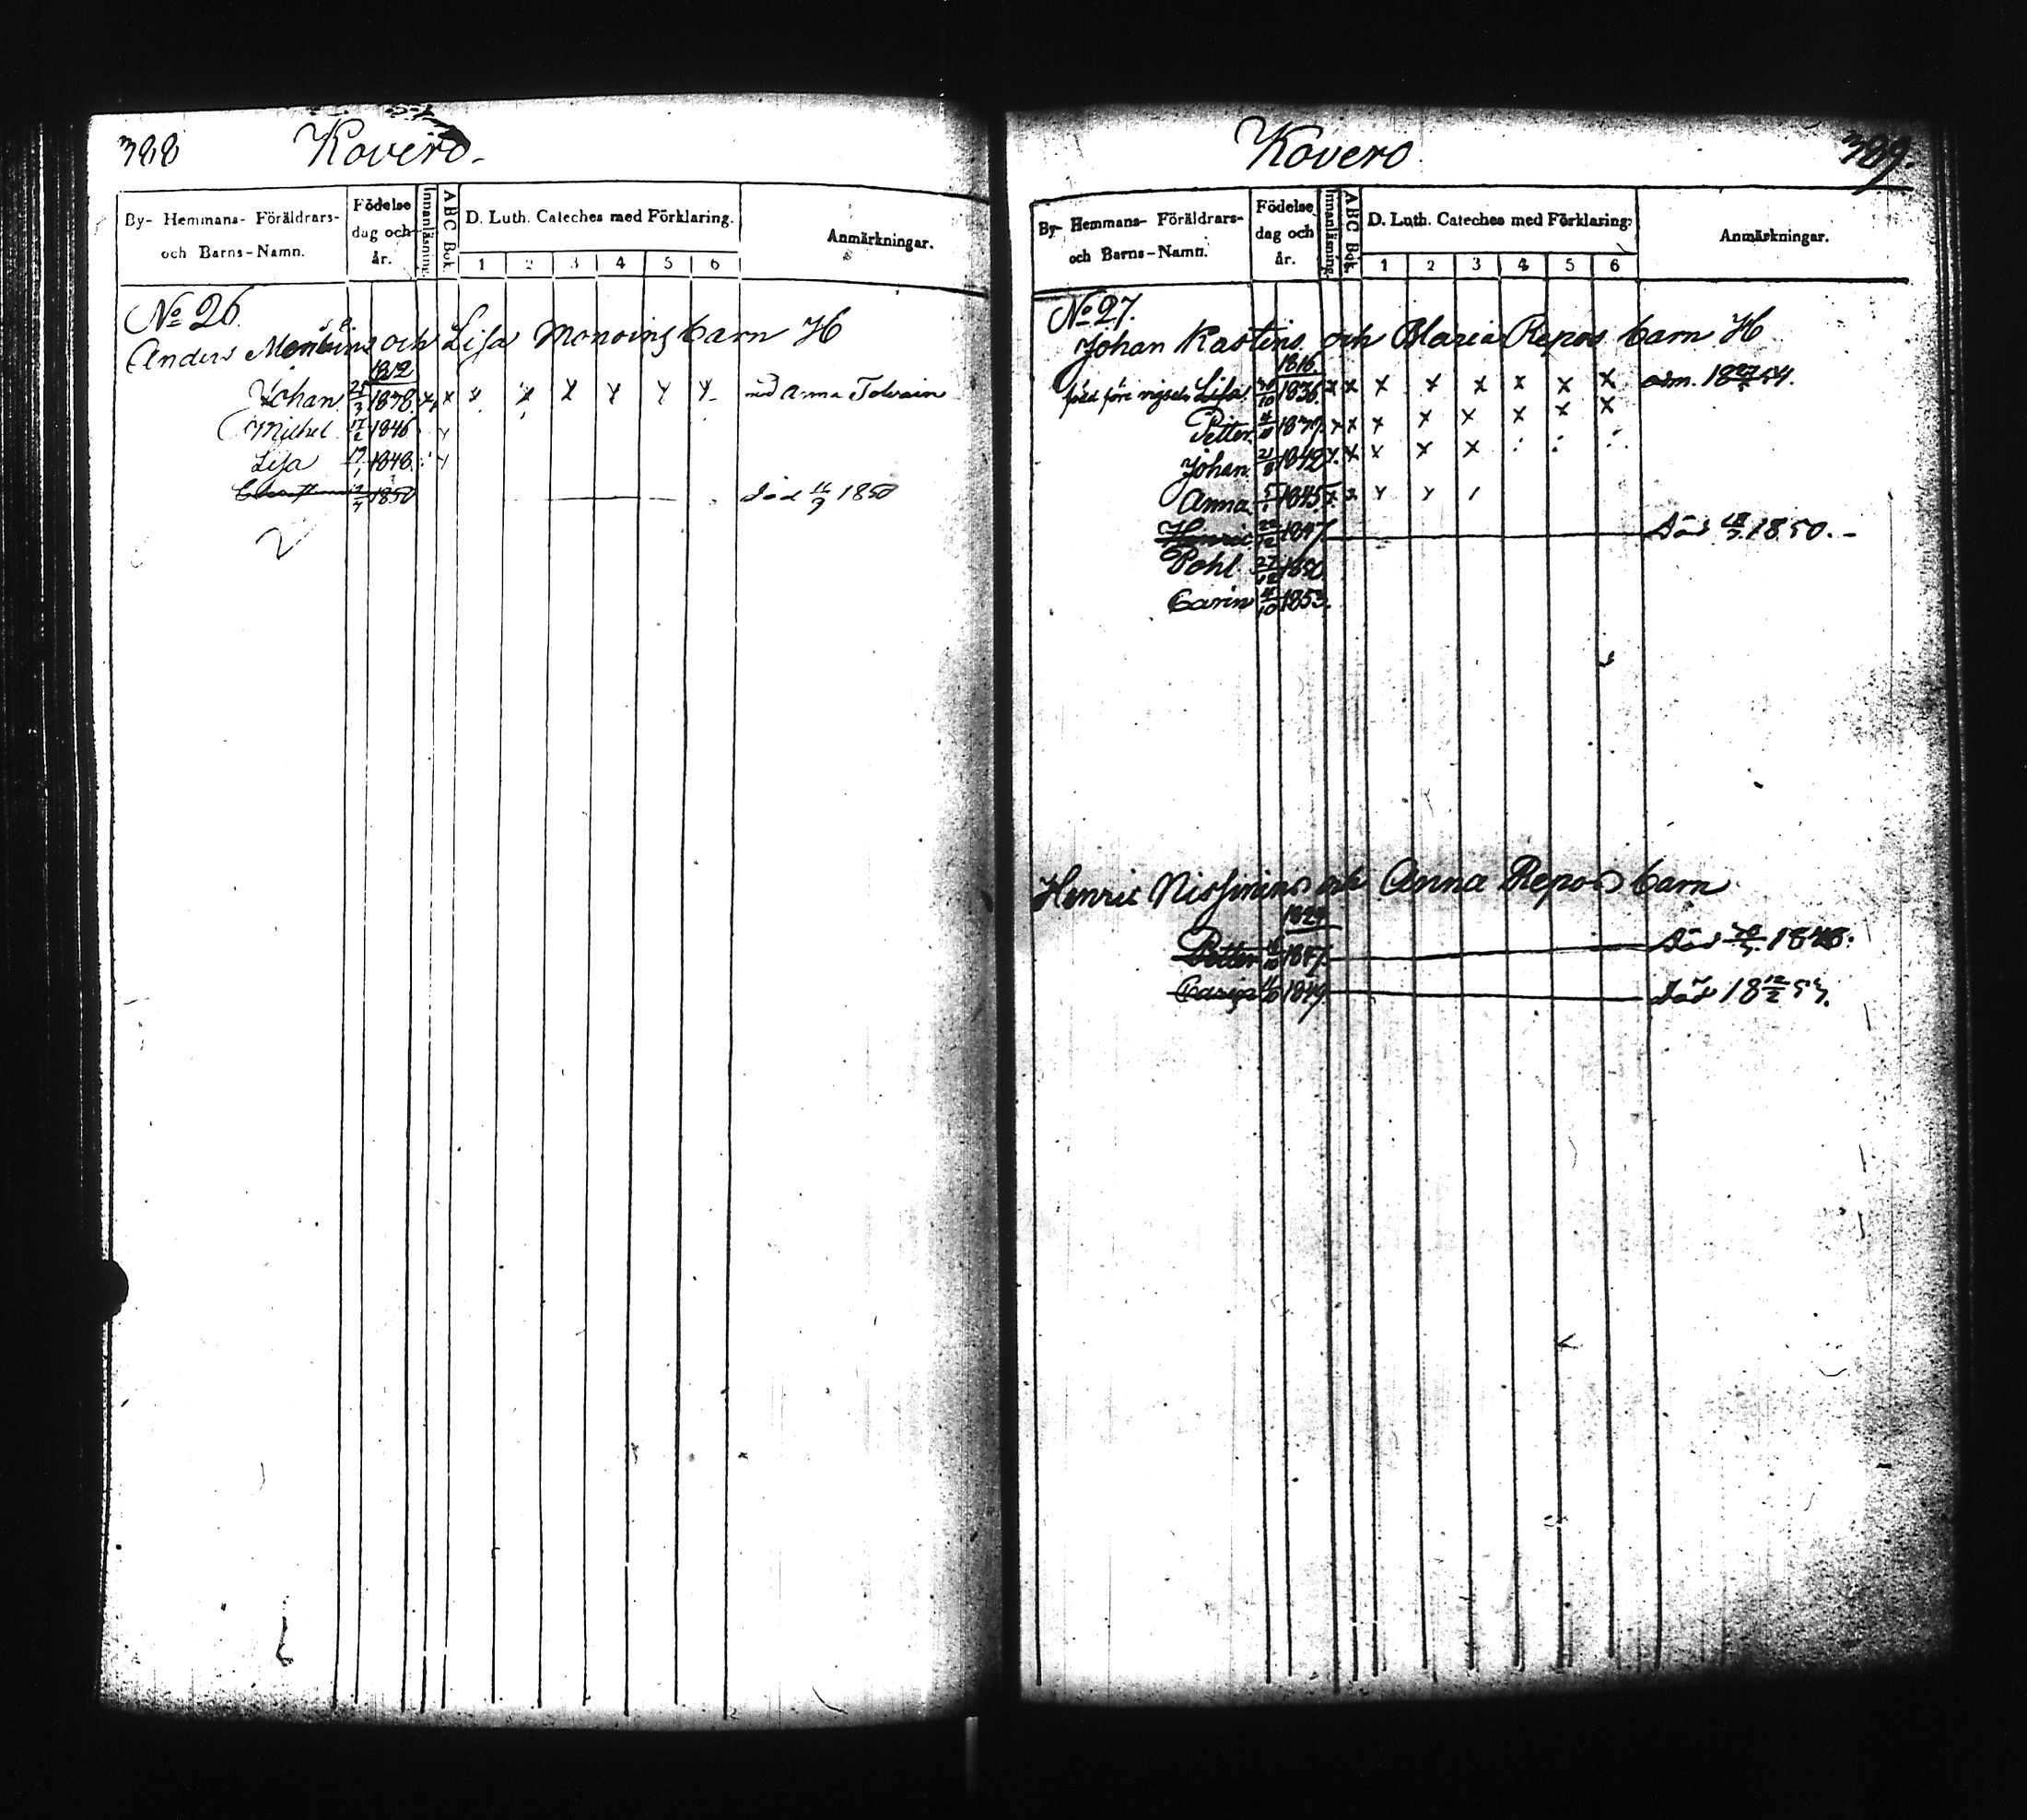 388 Kovero.
By- Hemmans- Föräldrars- och Barns-Namn.
Födelse dag och år.
Innanläsning.
ABC Bok.
D. Luth. Cateches med Förklaring.
1 2 3 4 5 6
Anmärkningar.
No 26.
Anders och Lisa Monoins barn H
1812
Johan 25/3 1838. x x x x x x x x Anna
Michel 17/2 1846 x
Lisa 19/1 1848. x
1850 död 11/9 1850
2
Kovero 389.
By- Hemmans- Föräldrars- och Barns-Namn.
Födelse dag och år.
Innanläsning.
ABC Bok.
D. Luth. Cateches med Förklaring.
1 2 3 4 5 6
Anmärkningar.
No 27.
Johan Kastins och Maria Repos barn H
1816.
född före vigseln Lisa 30/10 1836. x x x x x x x x 54.
Petter 1839. x x x x x x x x
Johan 21/8 1842 x x x x x
Anna 5/1 1845. x x x x
Henric 22/12 1847. Död 1850.
Pohl 27/12 1850.
Carin 4/10 1853.
Henric Nissinens och Anna Repos barn
1824
Petter 1847. Död 1848.
Carin 1849. Död 18 12/2 53.